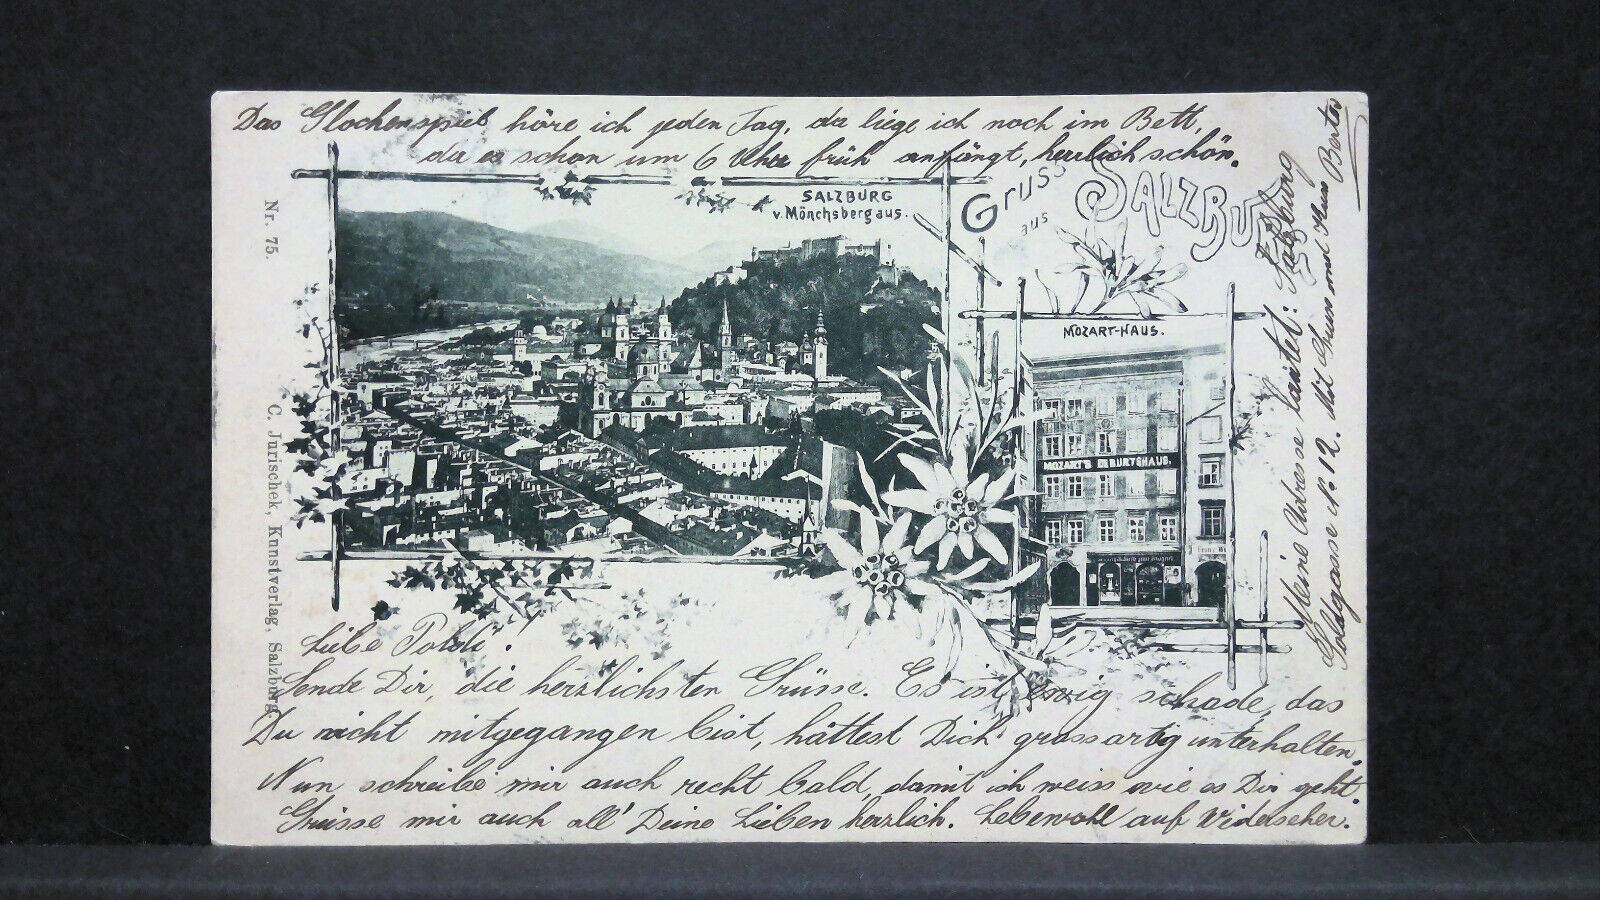 Das Glockenspiel höre ich jeden Tag, da liege ich noch im Bett,
da es schon um 6 Uhr früh anfängt, herrlich schön.
SALZBURG
v. Mönchsberg aus.
Gruss
aus
SALZBURG
MOZART-HAUS.
MOZART'S GEBURTSHAUS.
Nr. 75.
C. Jurischek, Knnstverlag, Salzburg.
Meine Adresse lautet: Salzburg
Golsgasse No 12. Mit Gruss und Kuss
Liebe Poldi!
Sende Dir, die herzlichsten Grüsse. Es ist ewig schade, das
Du nicht mitgegangen bist, hättest Dich grossartig unterhalten.
Nun schreibe mir auch recht bald, damit ich weiss wie es Dir geht.
Grüsse mir auch all' Deine Lieben herzlich. Lebewohl auf Widersehen.